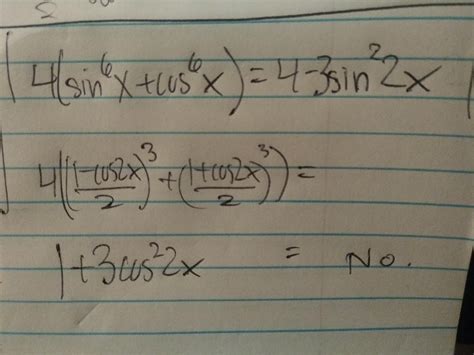 4(sin⁶x+cos⁶x)=4-3sin²2x
4((1-cos2x/2)³+(1+cos2x/2)³)=
1+3cos²2x = No.